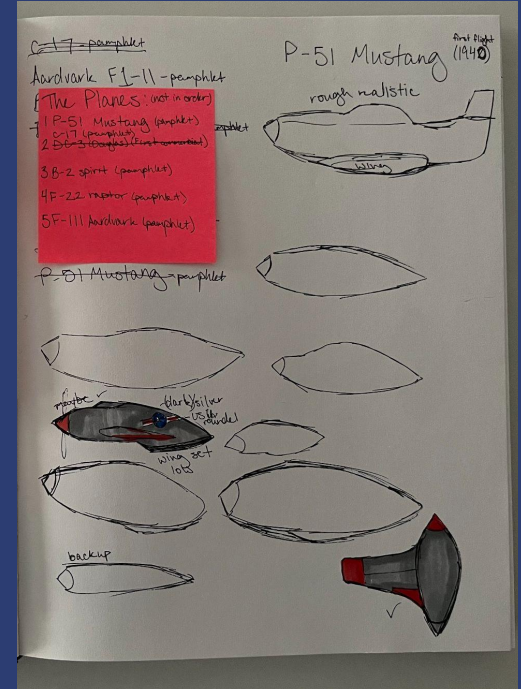 C-17 - pamphlet
Aardvark F1-11 - pamphlet
The Planes: (not in order)
1 P-51 Mustang (pamphlet)
C-17 (pamphlet)
2 DC-3 (Douglas) (First commercial)
3 B-2 spirit (pamphlet)
4 F-22 raptor (pamphlet)
5 F-111 Aardvark (pamphlet)
pamphlet
P-51 Mustang - pamphlet
first flight
P-51 Mustang (1940)
rough realistic
wing
maybe ✓
dark/silver
US
roundel
wing set
lots
backup
✓